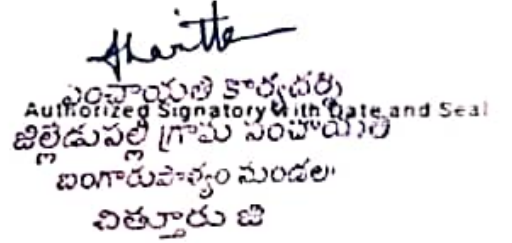 పంచాయతి కార్యదర్శి
Authorized Signatory with Date and Seal
జిల్లేడుపల్లి గ్రామ పంచాయతి
బంగారుపాళ్యం మండలం
చిత్తూరు జి